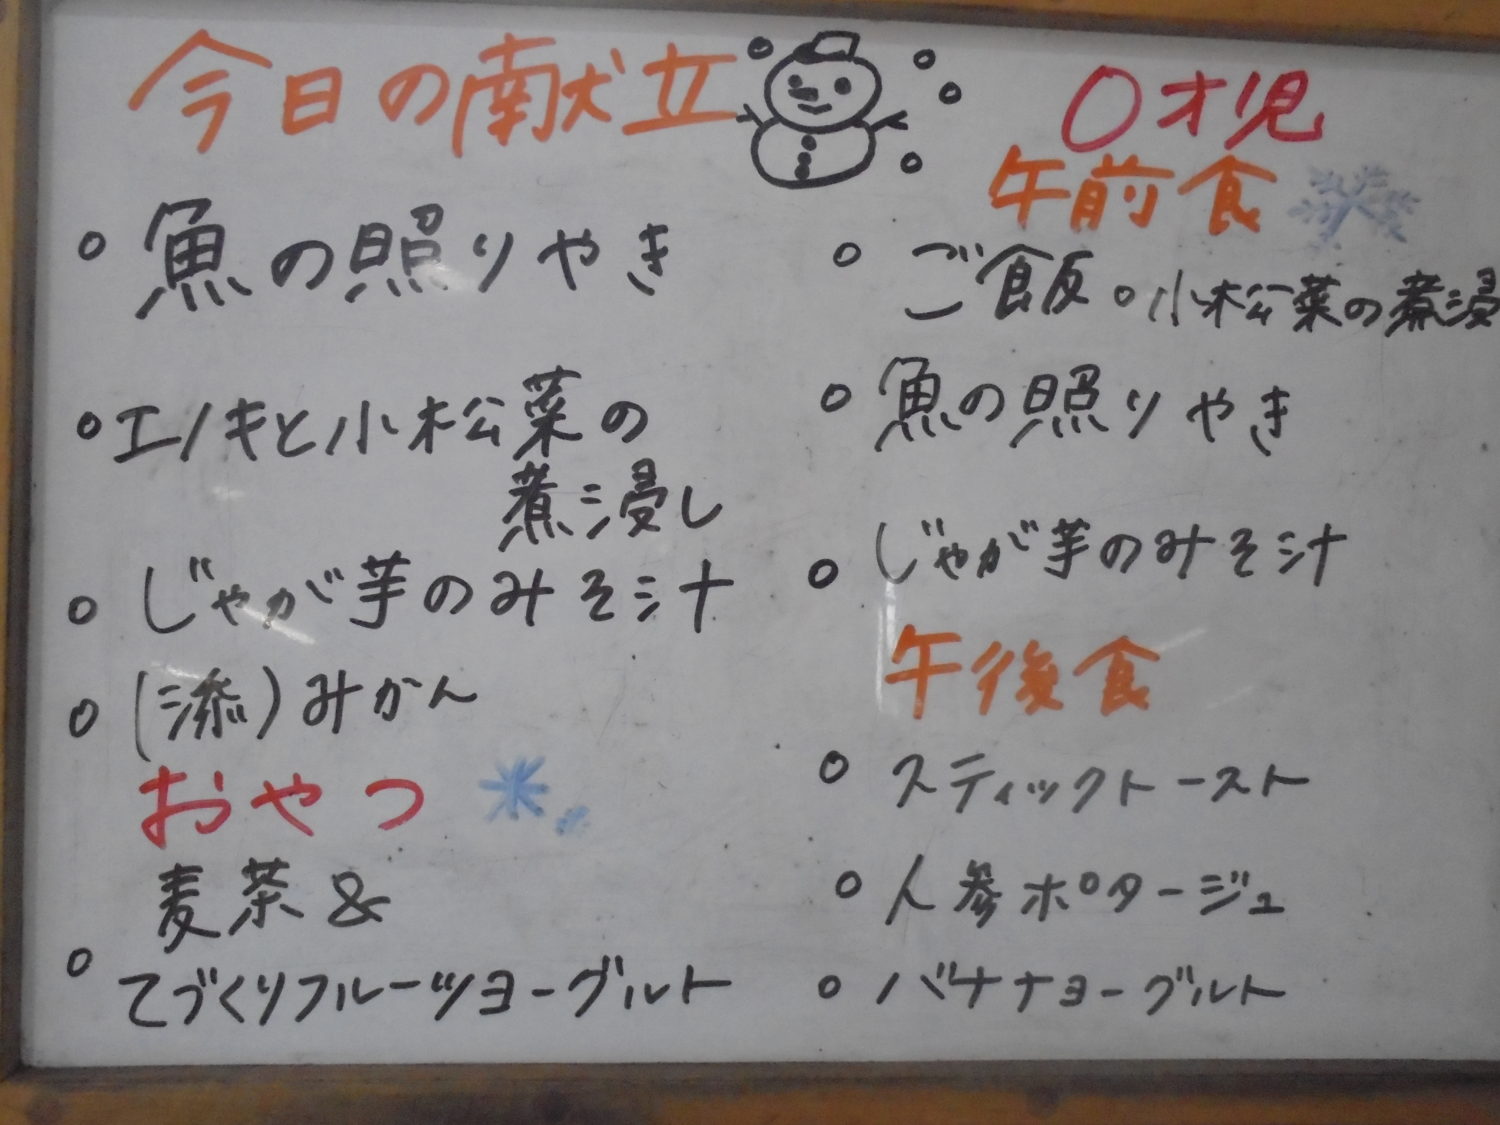 今日の献立
魚の照りやき
エノキと小松菜の
煮浸し
じゃが芋のみそ汁
(添)みかん
おやつ
麦茶&
てづくりフルーツヨーグルト
0才児
午前食
ご飯。小松菜の煮浸
魚の照りやき
じゃが芋のみそ汁
午後食
スティックトースト
人参ポタージュ
バナナヨーグルト